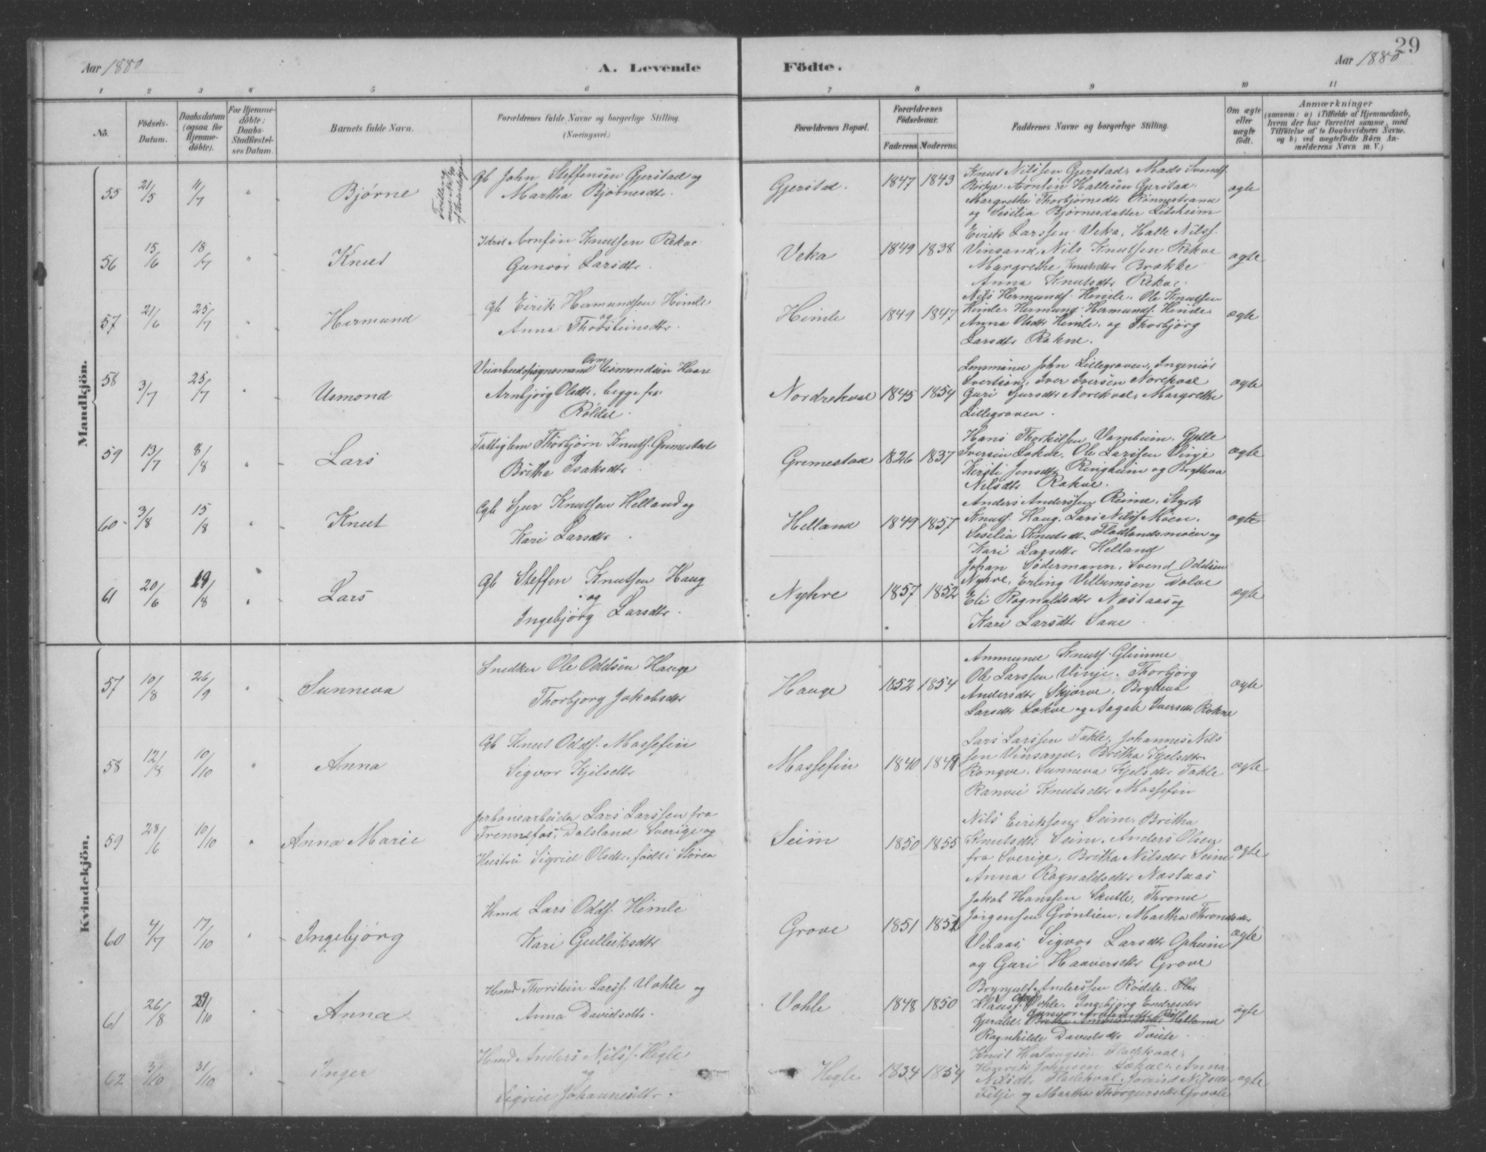 29
Aar 1880
A. Levende
Födte.
Aar 1880
1 2 3 4 5 6 7 8 9 10 11
No.
Födsels-Datum.
Daabsdatum (ogsaa for Hjemme-döbte).
For Hjemme-döbte: Daabs-Stadfæstel-ses Datum.
Barnets fulde Navn.
Forældrenes fulde Navne og borgerlige Stilling. (Næringsvei.)
Forældrenes Bopæl.
Forældrenes Födselsaar.
Faderens. Moderens.
Faddernes Navne og borgerlige Stilling.
Om ægte eller uægte födt.
Anmærkninger
Mandkjön.
55 21/5 11/7 Bjørne
Gb John Steffensen Gjerstad og
Martha Bjørnesdtr.
Gjerstad. 1847 1843
Knut Nilssen Gjerstad, Mads Svendf.
Margrethe Thorbjørnsdtr Rønnestrand
og Sesilia Bjørnesdatter Litsheim
ægte
56 15/6 18/7 Knut
Arnfin Knutsen Rekve
Gunvor Larsdtr.
Veka 1849 1838
Eirik Larssen Veka, Halle Nilsf.
Vinsand, Nils Knutsen Rekve
Margrethe Knutsdtr Brække
Anna Knutsdtr Rekve.
ægte
57 21/6 25/7 Hermund
Gb Eirik Hermundsen Himle
og
Anna Thorsteinsdtr.
Himle 1849 1847
Nils Hermundf. Himle, Ole Knutsen
Himle, Hermund Hermundf. Himle
Anna Olsdtr Himle, og Thorbjørg
Larsdtr Rokne.
ægte
58 3/7 25/7 Usmond
Orm Usmondsen Haare
Arnbjørg Olsdtr, begge fra
Röldal.
Nordrekval 1845 1854
Lensmand John Lillegraven, Ingeniør
Sivertsen, Iver Iversen Norekval
Guri Sjursdtr Norekval, Margrethe
Lillegraven.
ægte
59 13/7 8/8 Lars
Fattiglem Thorbjørn Knutf. Grimestad
Britha Isaksdtr
Gremestad 1826 1837
Hans Thorkilsen
Iversen Lekve, Ole Larssen Virje
Kirsti Jensdtr Ringheim og Brytteva
Nilsdtr Rokne.
ægte
60 3/8 15/8 Knut
Gb Sjur Knutsen Helland og
Kari Larsdtr.
Helland 1849 1857
Anders Andersen Reime, Styrk
Knutf. Haug, Lars Nilsf. Moen,
Sesilia Knutsdtr. Flatlandsmoen og
Kari Larsdtr Helland
ægte
61 20/6 29/8 Lars
Gb Steffen Knutsen Haug
og
Ingebjørg Larsdtr.
Nyhre 1857 1852
Johan Södermaren, Svend Oddsen
Nyhre, Erling Villumsen Dolve
Eli Ragnaldsdtr Næstaas og
Kari Larsdtr Saue.
ægte
Kvindekjön.
57 10/8 26/9 Sunneva
Snedker Ole Oddsen Hauge
Thorbjørg Jakobsdtr
Hauge 1852 1854
Ammund Knutf. Glimme
Ole Larssen Virje, Thorbjørg
Andersdtr Skjerve, Bryteva
Larsdtr Lekve og Aagate Iversdtr Rokne
ægte
58 12/8 10/10 Anna
Gb Knut Oddf. Mossefin
Sigvor Kjelsdtr
Mossefin 1840 1849
Lars Larssen Takle, Johannes Nils
sen Vinsand, Britha Kjelsdtr
Rongve, Sunneva Kjelsdtr Takle
Ranvei Knutsdtr Mossefin
ægte
59 28/6 10/10 Anna Marie
Jærbanearbeider Lars Larssen fra
Dalsland Sverige og
Hustru Sigrid Olsdtr, født i Støren
Seim 1850 1855
Nils Eiriksen Seim, Britha
Knutsdtr Seim, Anders Olsen
fra Sverige, Britha Nilsdtr Seim
Anna Ragnaldsdtr Næstaas
ægte
60 4/7 17/10 Ingebjørg
Hmd Lars Oddf. Himle
Kari Gulleiksdtr
Grove 1851 1852
Jakob Hanssen Skutle, Thrond
Jørgensen Grönlien, Martha Throndsdtr
Vibaas, Sigvor Larsdtr Opheim
og Guri Haaversdtr Grove
ægte
61 26/8 29/10 Anna
Hmd Thorstein Larsf. Vohle og
Anna Davidsdtr.
Vohle 1848 1850
Brynjulf Andersen Rödde, Ole
Vohle, Ingebjørg Endresdtr
Gjerald,
Ragnhilde Davidsdtr Tveite
ægte
62 3/10 31/10 Inger
Hmd Anders Nilsf. Hegle
og
Sigrid Johannesdtr.
Hegle 1834 1854
Johnsen Lekve, Anna
Nilsdtr
og Martha Thorgersdtr
ægte